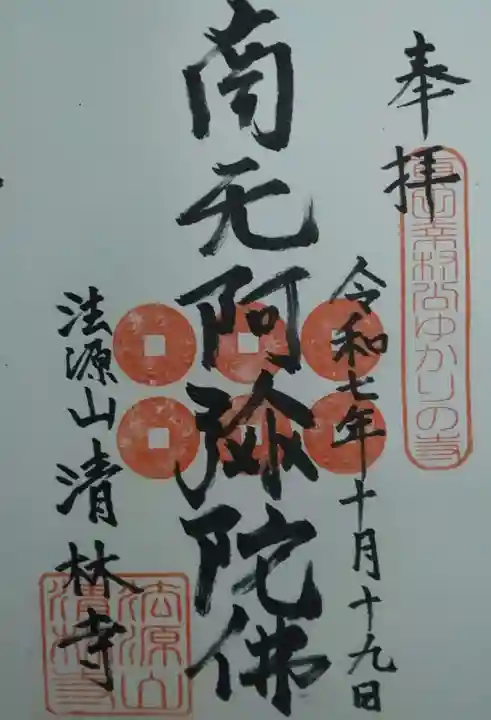 奉拝
真田幸村公ゆかりの寺
令和七年十月十九日
南无阿弥陀佛
法源山清林寺
法源山
清林寺